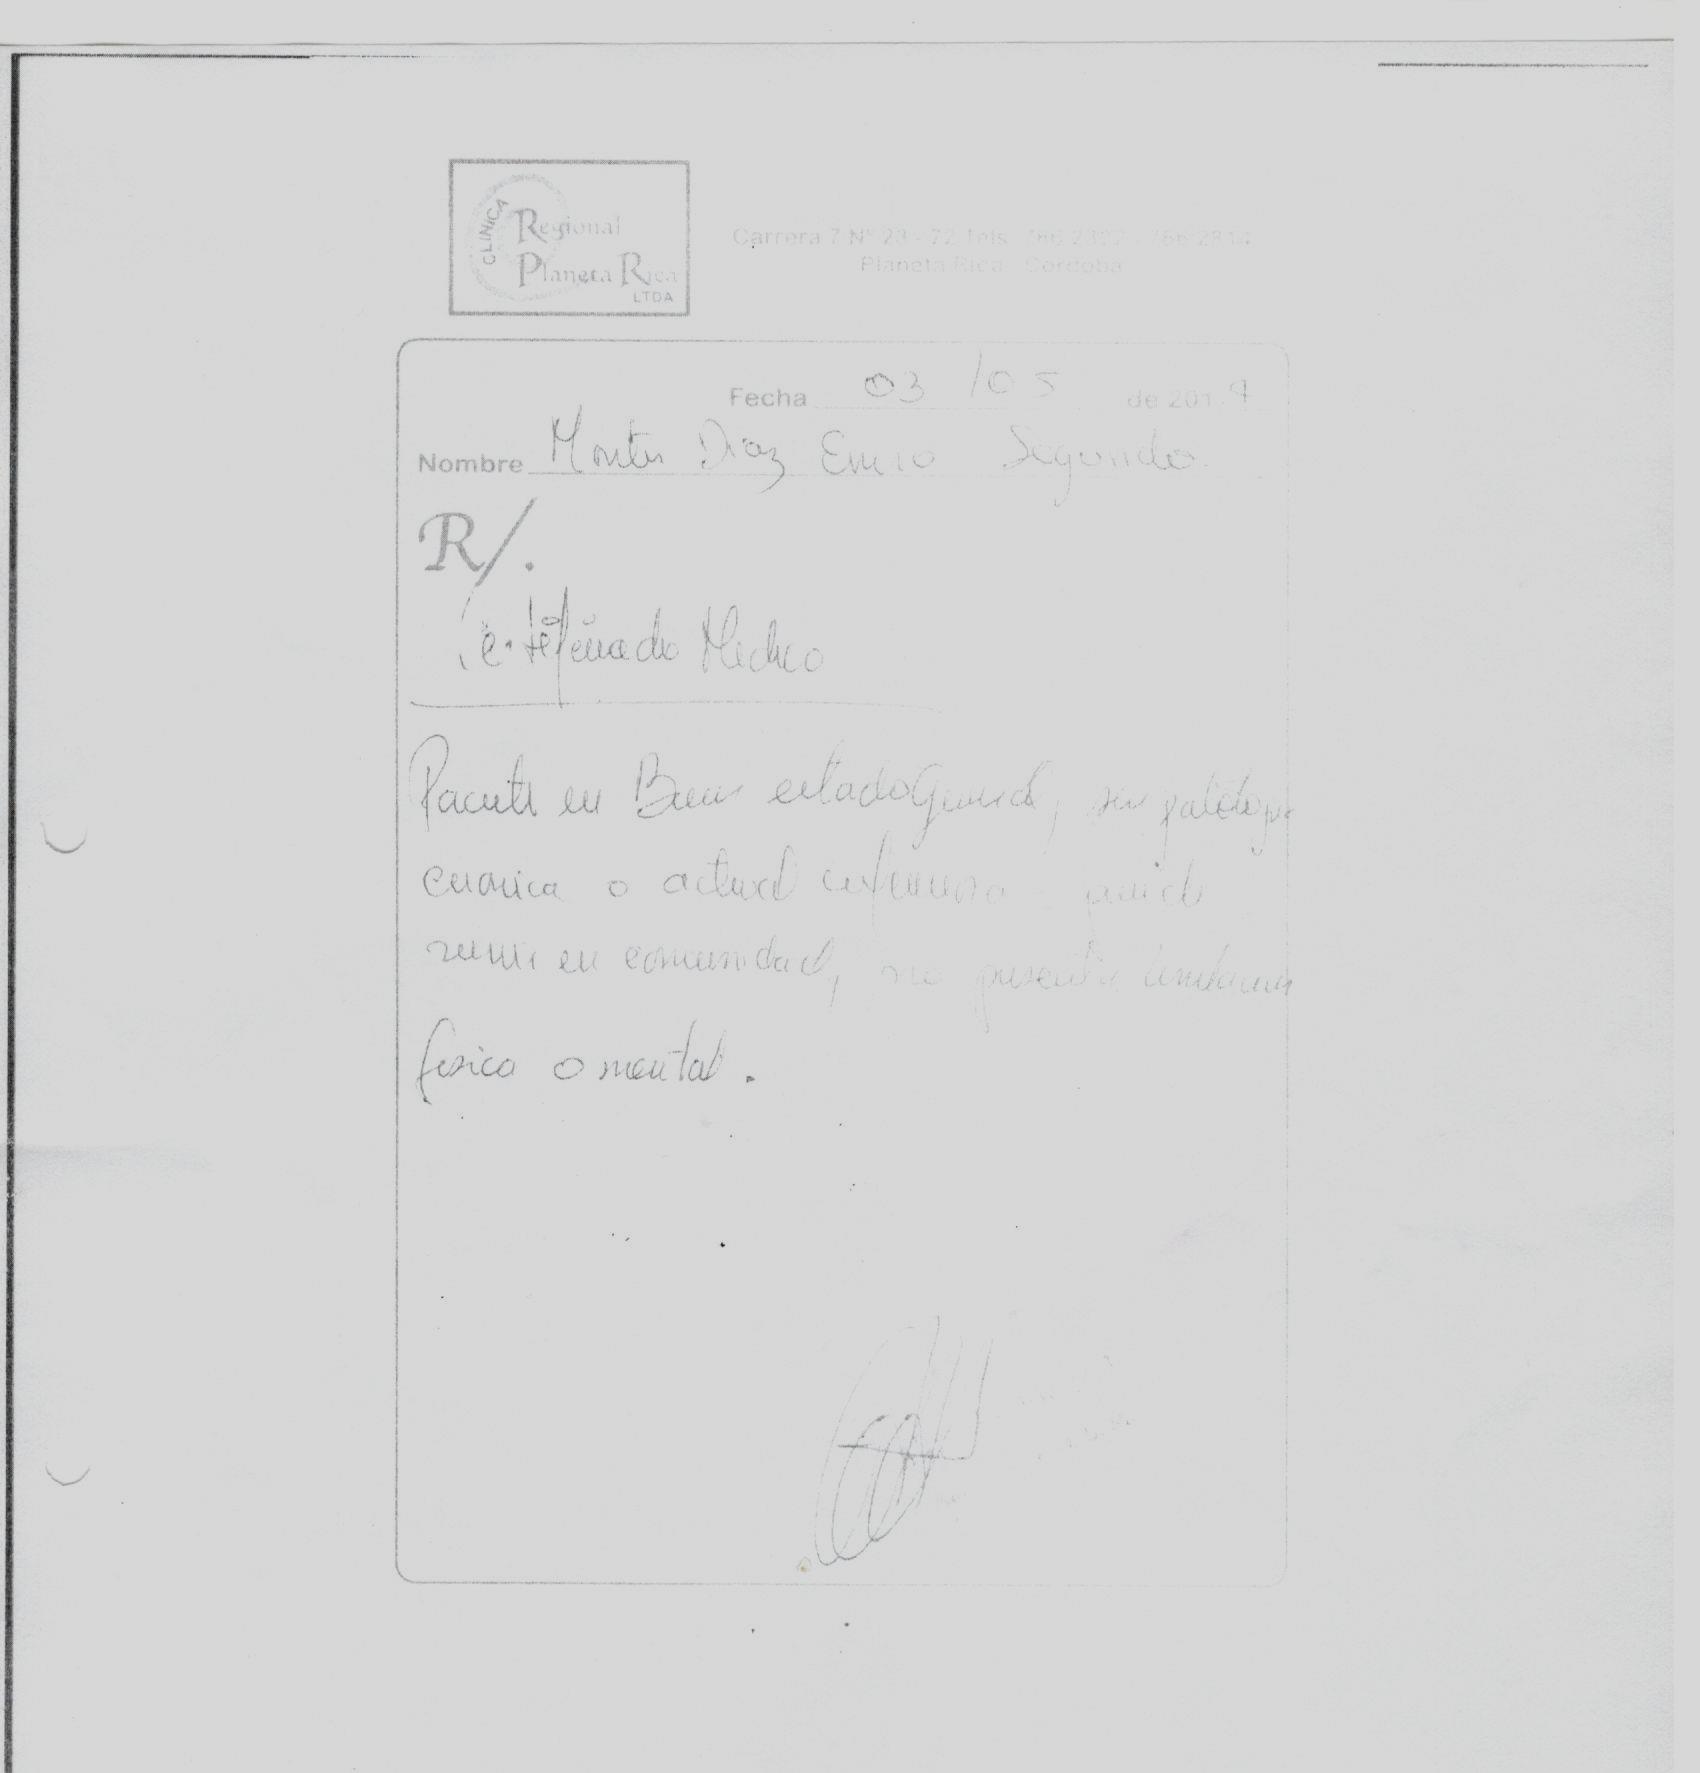 CLINICA
Regional
Planeta Rica
LTDA
Carrera 7 Nº 23 - 72 Tels. 766
Planeta Rica - Cordoba
Fecha 03 / 05 de 201
Nombre Montes Diaz Segundo
R/.
Certificado Medico
Paciente en Buen estado General, sin patologia
cronica o actual
en comunidad, no presenta limitacion
fisica o mental.